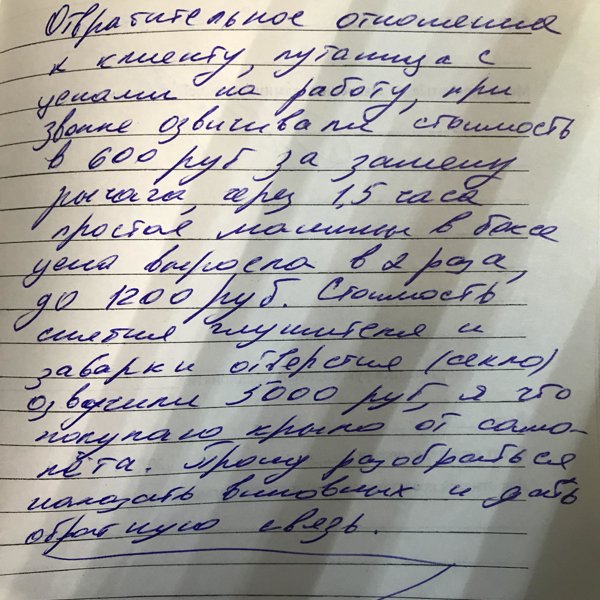 Отвратительное отношение
к клиенту, путаница с
ценами на работу, при
звонке озвучивали стоимость
в 600 руб за замену
рычага, через 1,5 часа
простоя машины в боксе
цена выросла в 2 раза,
до 1200 руб. Стоимость
снятия глушителя и
заварки отверстия (секло)
озвучили 5000 руб, я что
покупаю крыло от само-
лёта. Прошу разобраться
наказать виновных и дать
обратную связь.